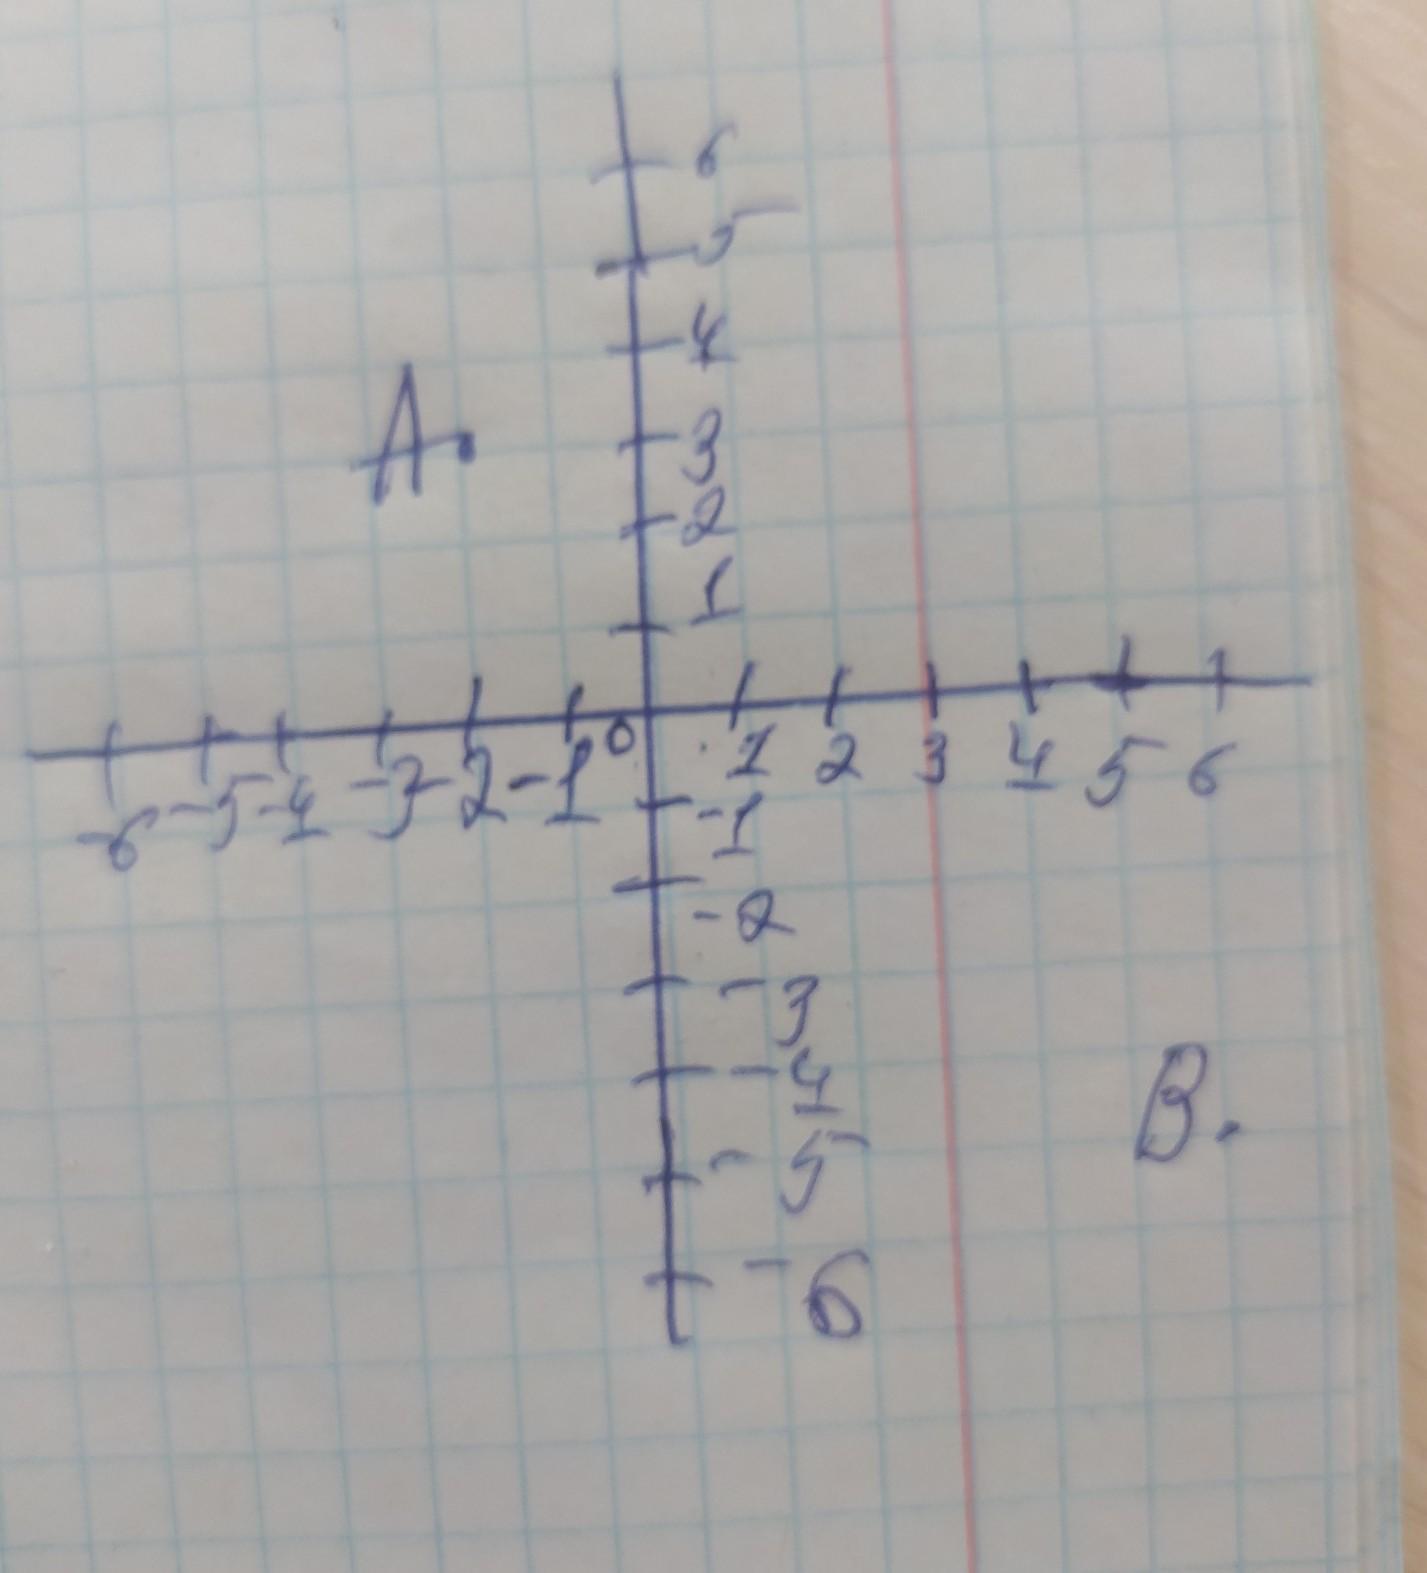 6
5
4
A.
3
2
1
0 1 2 3 4 5 6
-6 -5 -4 -3 -2 -1
-1
-2
-3
-4
B.
-5
-6